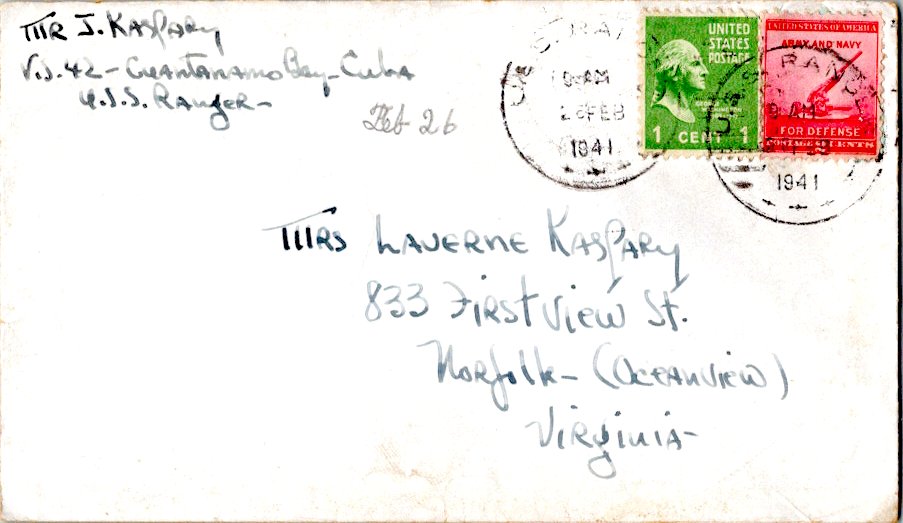 Mr J. Kaspary
V.S. 42 - Guantanamo Bay - Cuba
U.S.S. Ranger -
Feb 26
U.S.S. RAN
AM
FEB
1941
UNITED
STATES
POSTAGE
GEORGE
WASHINGTON
1 CENT 1
UNITED STATES OF AMERICA
ARMY AND NAVY
FOR DEFENSE
POSTAGE 2 CENTS
U.S.S. RANGER
9 AM
1941
Mrs Laverne Kaspary
833 First View St.
Norfolk - (Oceanview)
Virginia -